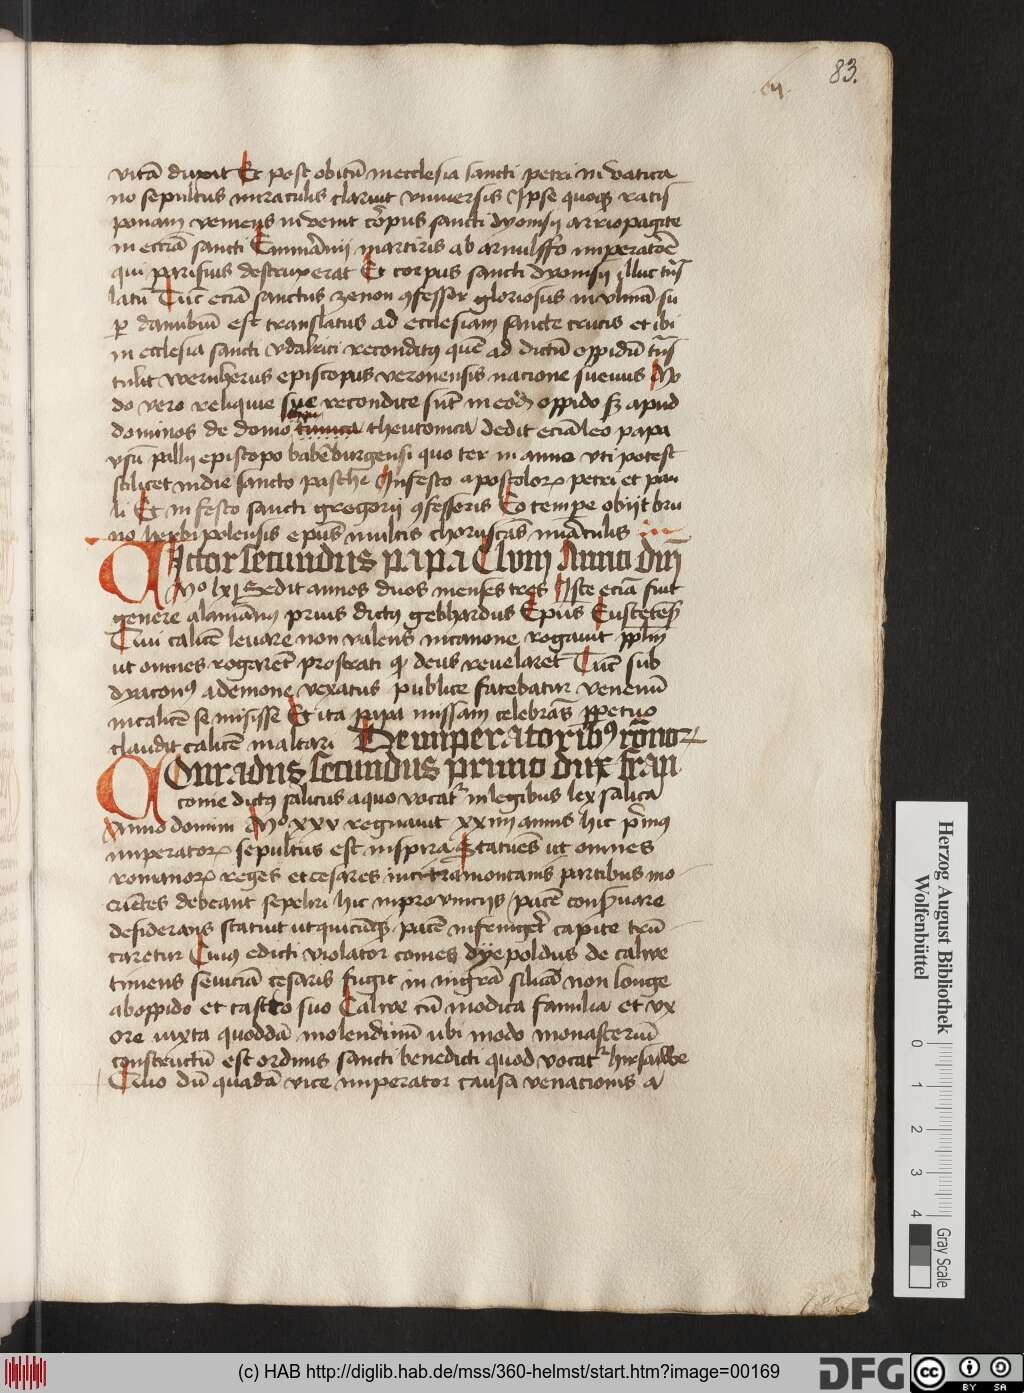 83.
vitā duxit Et post obitū in ecclesia sancti petri in vatica
no sepultus miraculis claruit vniuersis Ipse quoqʒ ratis
ponam veniens in venit corpus sancti dyonisij arriopagite
in ecciā sancti Emmerāmij martiris ab arnulffo imperatore
qui parisius destruxerat Et corpus sancti dyonisij illuc trās
latū Tūc eciā sanctus zenon ꝯfessor gloriosus in vlmā su
ꝑ danubiū est translatus ad ecclesiam sancte crucis et ibi
in ecclesia sancti vdalrici reconditꝰ quē ad dictū oppidū trās
tulit wernherus episcopus veronensis nacione sueuus Mo
do vero reliquie sue recondite sūt in eodē oppido sʒ apud
dominos de domo theutonica dedit eciā leo papa
vsū pallij episcopo babēburgensi quo ter in anno vti potest
scilicet in die sancto pasche In festo apostolorꝝ petri et pau
li Et in festo sancti gregorij ꝯfessoris Eo tempe obijt bru
no herbipolensis epūs multis choruscās mirāculis
Victor secundus papa Clvııj Anno dnī
Mo lxj Sedit annos duos menses tres Iste eciā fuit
genere alamānꝰ prius dictꝰ gebhardus Epūs Eustetēs
Cui calicē leuare non valens in canone rogauit pplm
ut omnes rogarēt prostrati qͥ deus reuelaret Tūc sub
dyaconꝰ a demone vexatus publice fatebatur venenū
in calicē se misisse Et ita papa missam celebrās ꝑpetuo
claudit calicē in altari De imperatoribꝰ rōnorꝝ
Conradus secundus primo dux fran
conie dictꝰ salicus a quo vocatʳ in legibus lex salica
Anno domini Mo xxv regnauit xxiiij annis hic pͥmꝰ
imperatorꝝ sepultus est in spira Statuēs ut omnes
romanorꝝ reges et cesares in citramontanis partibus mo
riētes debeant sepeliri hic in prouincijs pacē conꝰuare
desiderans statuit ut quicūqʒ pacē infringeret capite trū
caretur Cuiꝰ edicti violator comes dyepoldus de calwe
timens seuiciā cesaris fugit in nigrā siluā non longe
ab oppido et castro suo Calwe cū modica familia et vx
ore iuxta quoddā molendinū ubi modo monasteriū
constructū est ordinis sancti benedicti quod vocatʳ hirsawe
Cuio dū quadā vice imperator causa venacionis a
Herzog August Bibliothek
Wolfenbüttel
0 1 2 3 4
Gray Scale
(c) HAB http://diglib.hab.de/mss/360-helmst/start.htm?image=00169
DFG
cc
BY SA